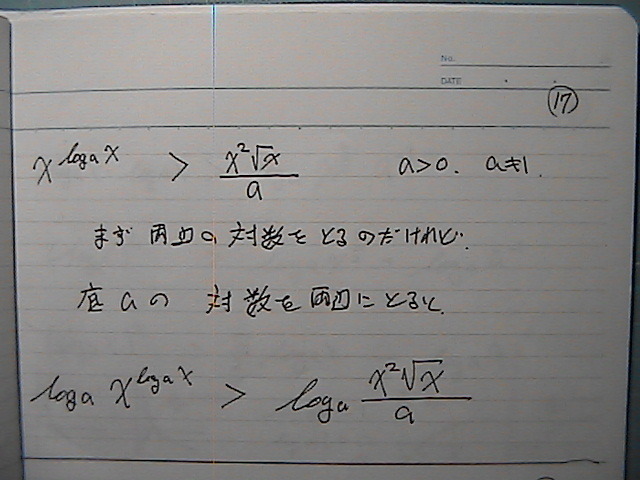 No.
DATE
⑰
x^{log_a x} > \frac{x^2\sqrt{x}}{a} a>0. a≠1.
まず両辺の対数をとるのだけれど.
底aの 対数を両辺にとると.
log_a x^{log_a x} > log_a \frac{x^2\sqrt{x}}{a}